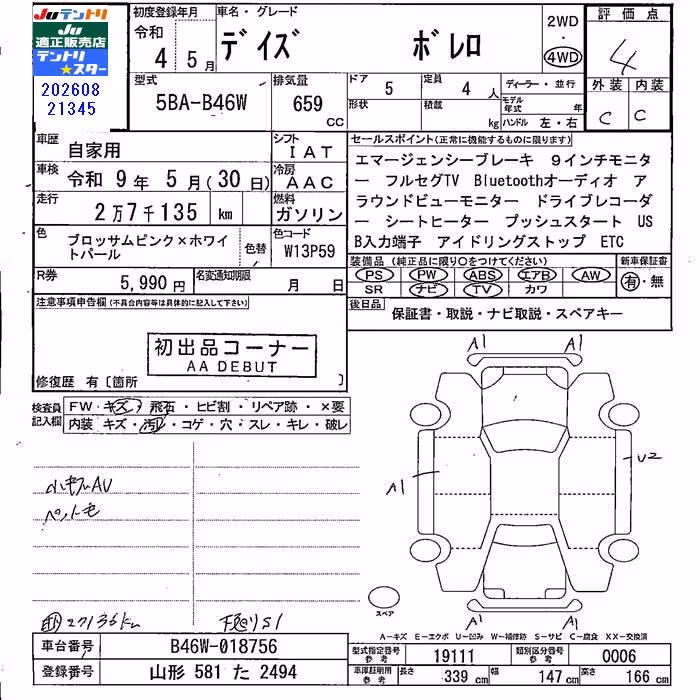 Juテントリ
Ju
適正販売店
テントリ
★スター
202608
21345
初度登録年月
令和
4 年 5 月
車名・グレード
デイズ ボレロ
2WD
・
4WD
評価点
4
外装 内装
C C
型式
5BA-B46W
排気量
659
CC
ドア
5
形状
定員
4 人
積載
kg
ディーラー・並行
モデル年式 年
ハンドル 左・右
車歴
自家用
シフト
IAT
車検
令和 9年 5月(30日)
冷房
AAC
走行
2万7千135 km
燃料
ガソリン
色
ブロッサムピンク×ホワイトパール
色替
色コード
W13P59
R券
5,990円
名変通知期限
月 日
セールスポイント(正常に機能するものに限ります)
エマージェンシーブレーキ 9インチモニタ
ー フルセグTV Bluetoothオーディオ ア
ラウンドビューモニター ドライブレコーダ
ー シートヒーター プッシュスタート US
B入力端子 アイドリングストップ ETC
装備品(純正品に限り○をつけてください)
PS PW ABS エアB AW
SR ナビ TV カワ
新車保証書
有・無
後日品
保証書・取説・ナビ取説・スペアキー
注意事項申告欄(不具合内容等は具体的に記入して下さい)
初出品コーナー
AA DEBUT
修復歴 有〔箇所 〕
検査員
記入欄
FW・キズ・飛石・ヒビ割・リペア跡・×要
内装 キズ・汚れ・コゲ・穴・スレ・キレ・破レ
ペット毛
27136km
下廻りS1
A1 A1
A1
U2
A1 A1
スペア
A－キズ E－エクボ U－凹み W－補修跡 S－サビ C－腐食 XX－交換済
車台番号
B46W-018756
登録番号
山形 581 た 2494
型式指定番号
参考
19111
類別区分番号
参考
0006
車庫証明用
参考
長さ 339 cm
幅 147 cm
高さ 166 cm